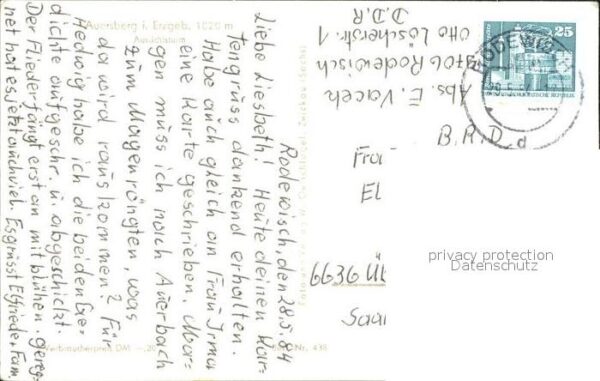 Auersberg i. Erzgeb. 1020 m
Aussichtsturm
Rodewisch, den 28.5.84
Liebe Liesbeth! Heute deinen Kar-
tengruss dankend erhalten.
Habe auch gleich an Frau Irma
eine Karte geschrieben. Mor-
gen muss ich nach Auerbach
zum Magenröngten, was
da wird rauskommen? Für
Hedwig habe ich die beiden Ge-
dichte aufgeschr. u. abgeschickt.
Der Flieder fängt erst an mit blühen. gereg-
net hat es jetzt auch viel. Es grüsst Elfriede + Fam.
Verbraucherpreis DM -,20
Nr. 438
Abs. E. Vacek
9706 Rodewisch
Otto Löscherstr. 1
D.D.R
RODEWISCH
25
B.R.D.
d
Frau
El
6636 Ü
Saar
privacy protection
Datenschutz